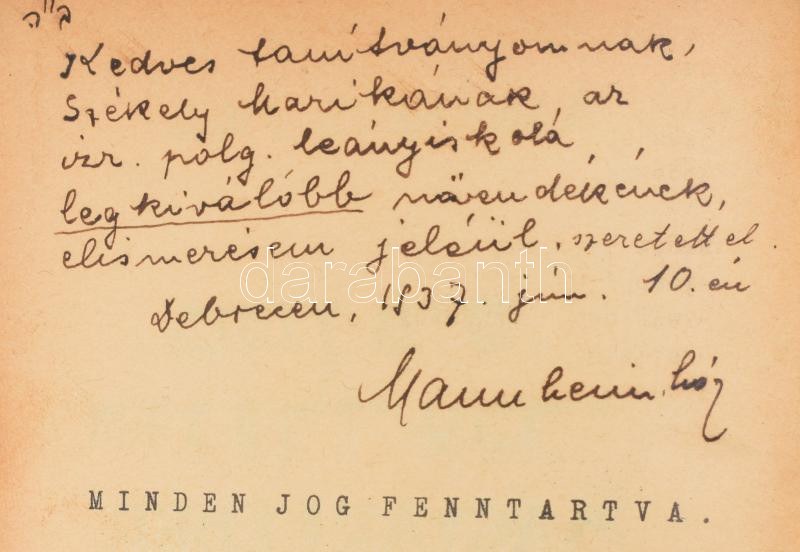 ב"ה
Kedves tanítványomnak,
Székely Marikának, az
izr. polg. leányiskolá
legkiválóbb növendékének,
elismerésem jeléül, szeretettel.
Debrecen, 1937. jún. 10.-én
Mannheim
MINDEN JOG FENNTARTVA.
darabanth